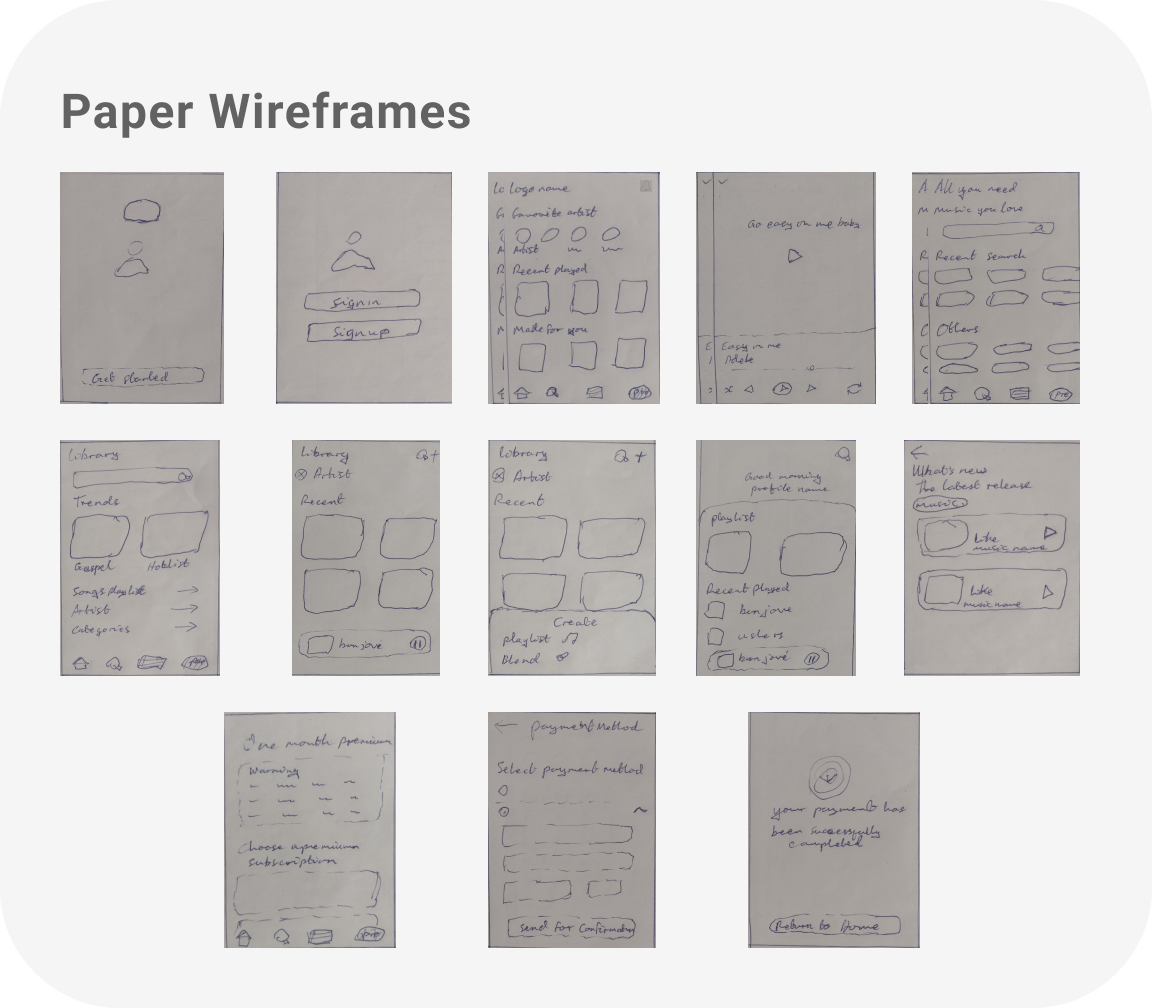 Paper Wireframes
Get started
Sign in
Sign up
Lo Logo name
G Favourite artist
A Artist
R Recent played
M Made for you
Pre
Go easy on me baby
E Easy on me
Adele
A All you need
M music you love
R Recent search
O Others
Pre
Library
Trends
Gospel Hotlist
Songs playlist
Artist
Categories
Library
Artist
Recent
bonjové
Library
Artist
Recent
Create
playlist
Blend
Good morning
profile name
playlist
Recent played
bonjove
ushers
bonjové
What's new
The latest release
music
Like
music name
Like
music name
One month premium
Warning
Choose a premium
subscription
Pre
payment Method
Select payment method
Send for Confirmation
your payment has
been successfully
completed
Return to Home